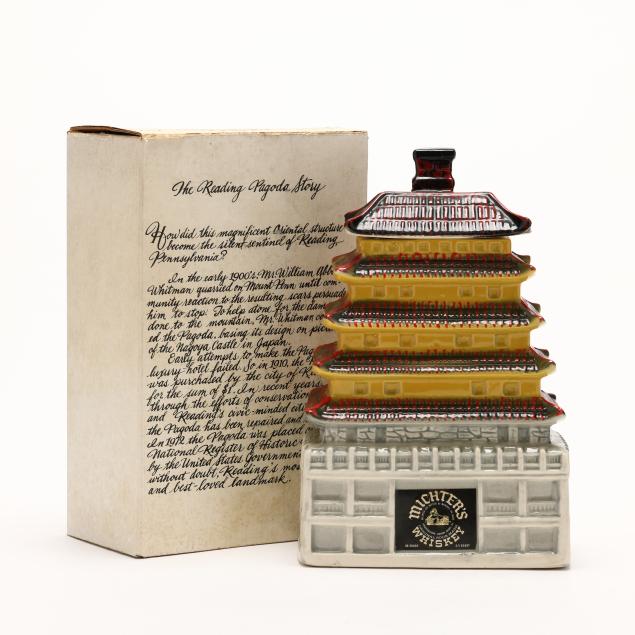 The Reading Pagoda Story
How did this magnificent Oriental structure
become the silent sentinel of Reading,
Pennsylvania?
In the early 1900's Mr. William
Whitman quarried on Mount Penn until com-
munity reaction to the resulting scars
him to stop. To help atone for the
done to the mountain, Mr. Whitman
ed the Pagoda, basing its design on
of the Nagoya Castle in Japan.
Early attempts to make the
luxury hotel failed. So in 1910, the
was purchased by the city of
for the sum of $1. In recent years
through the efforts of conservation
and Reading's civic-minded
the Pagoda has been repaired and
In 1972 the Pagoda was placed
National Register of Historic
by the United States Government
without doubt, Reading's
and best-loved landmark.
MICHTER'S
WHISKEY